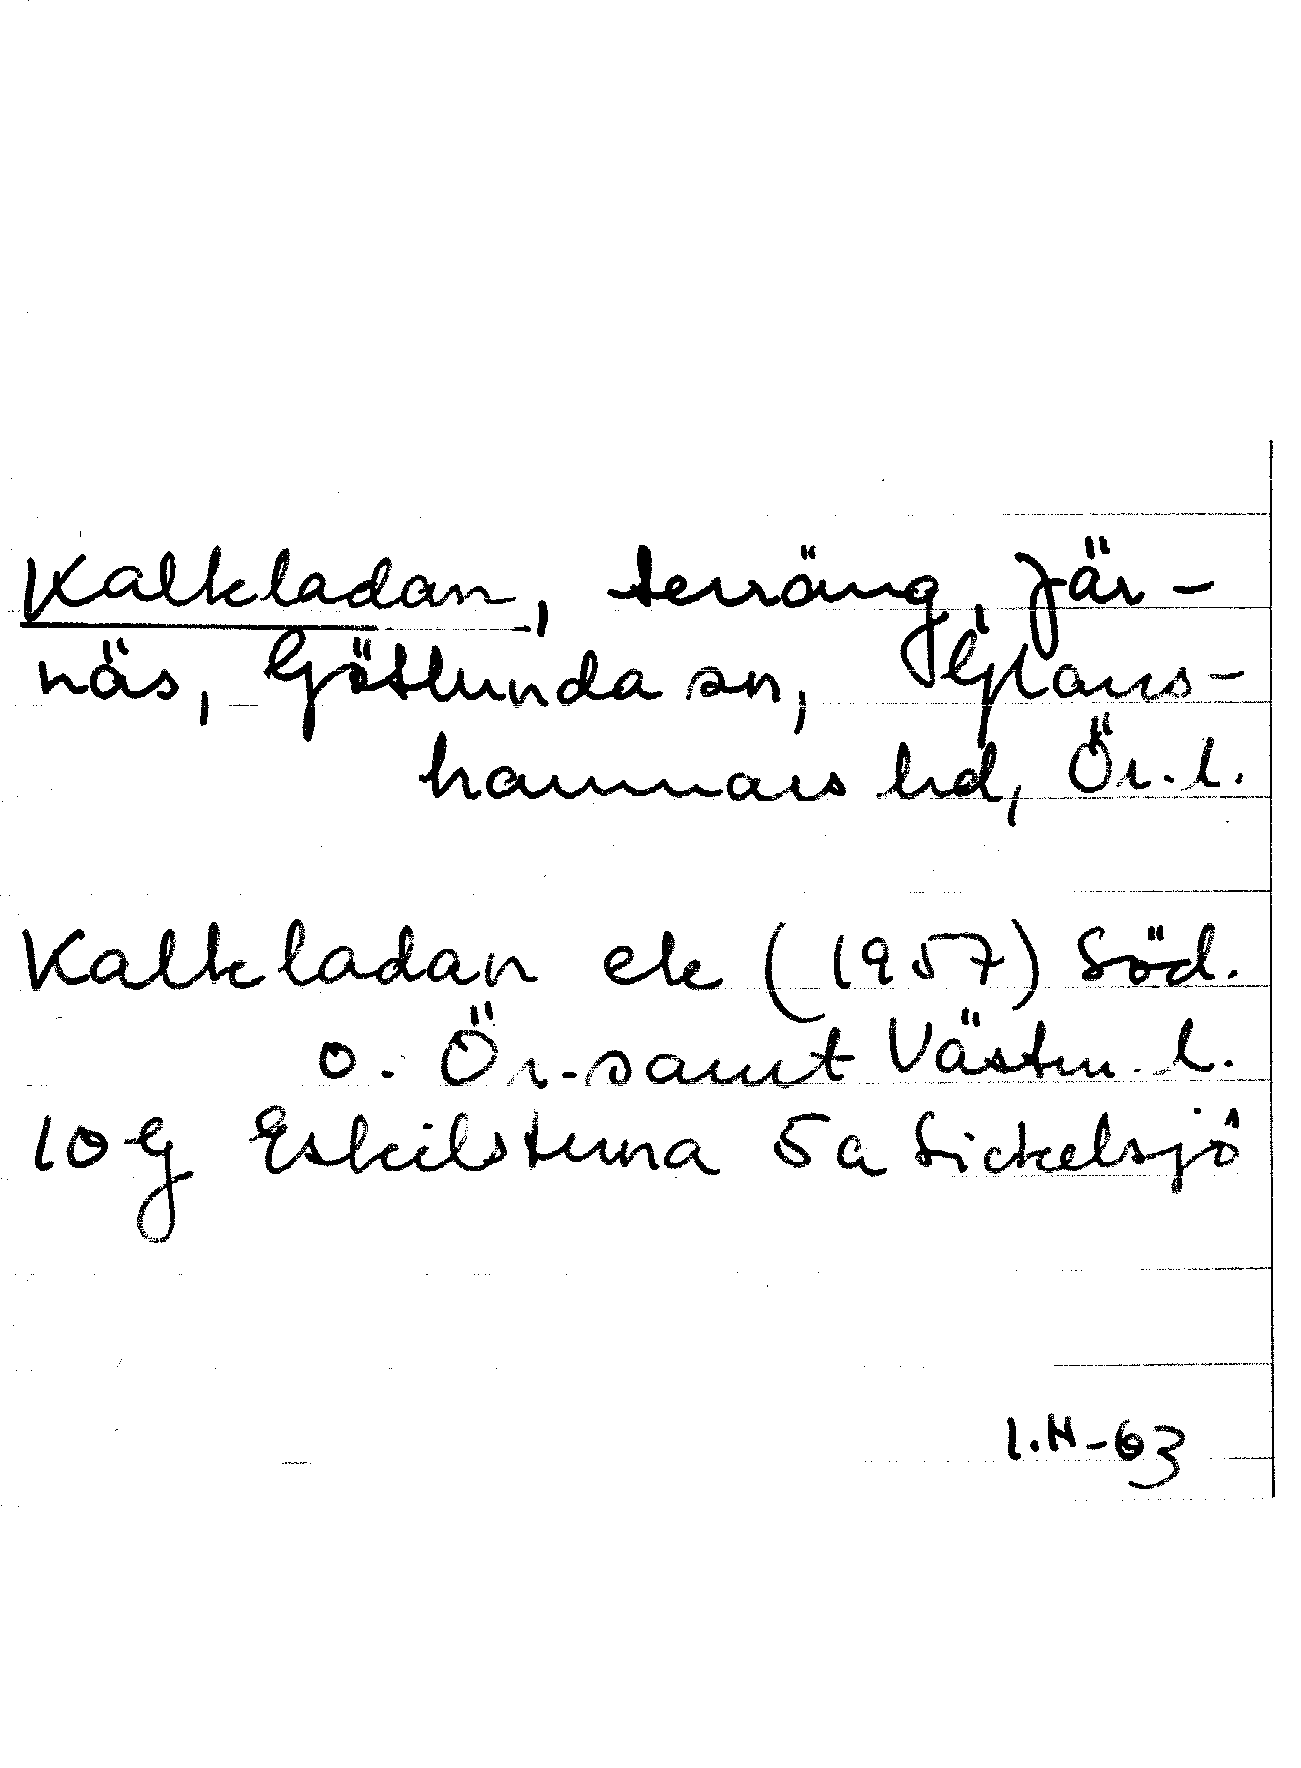 Kalkladan, terräng, Jär-
näs, Götlunda sn, Glans-
hammars hd, Ör. l.
Kalkladan ek (1957) Söd.
o. Ör. samt Västm. l.
10 G Eskilstuna 5 a Sickelsjö
I.H-63